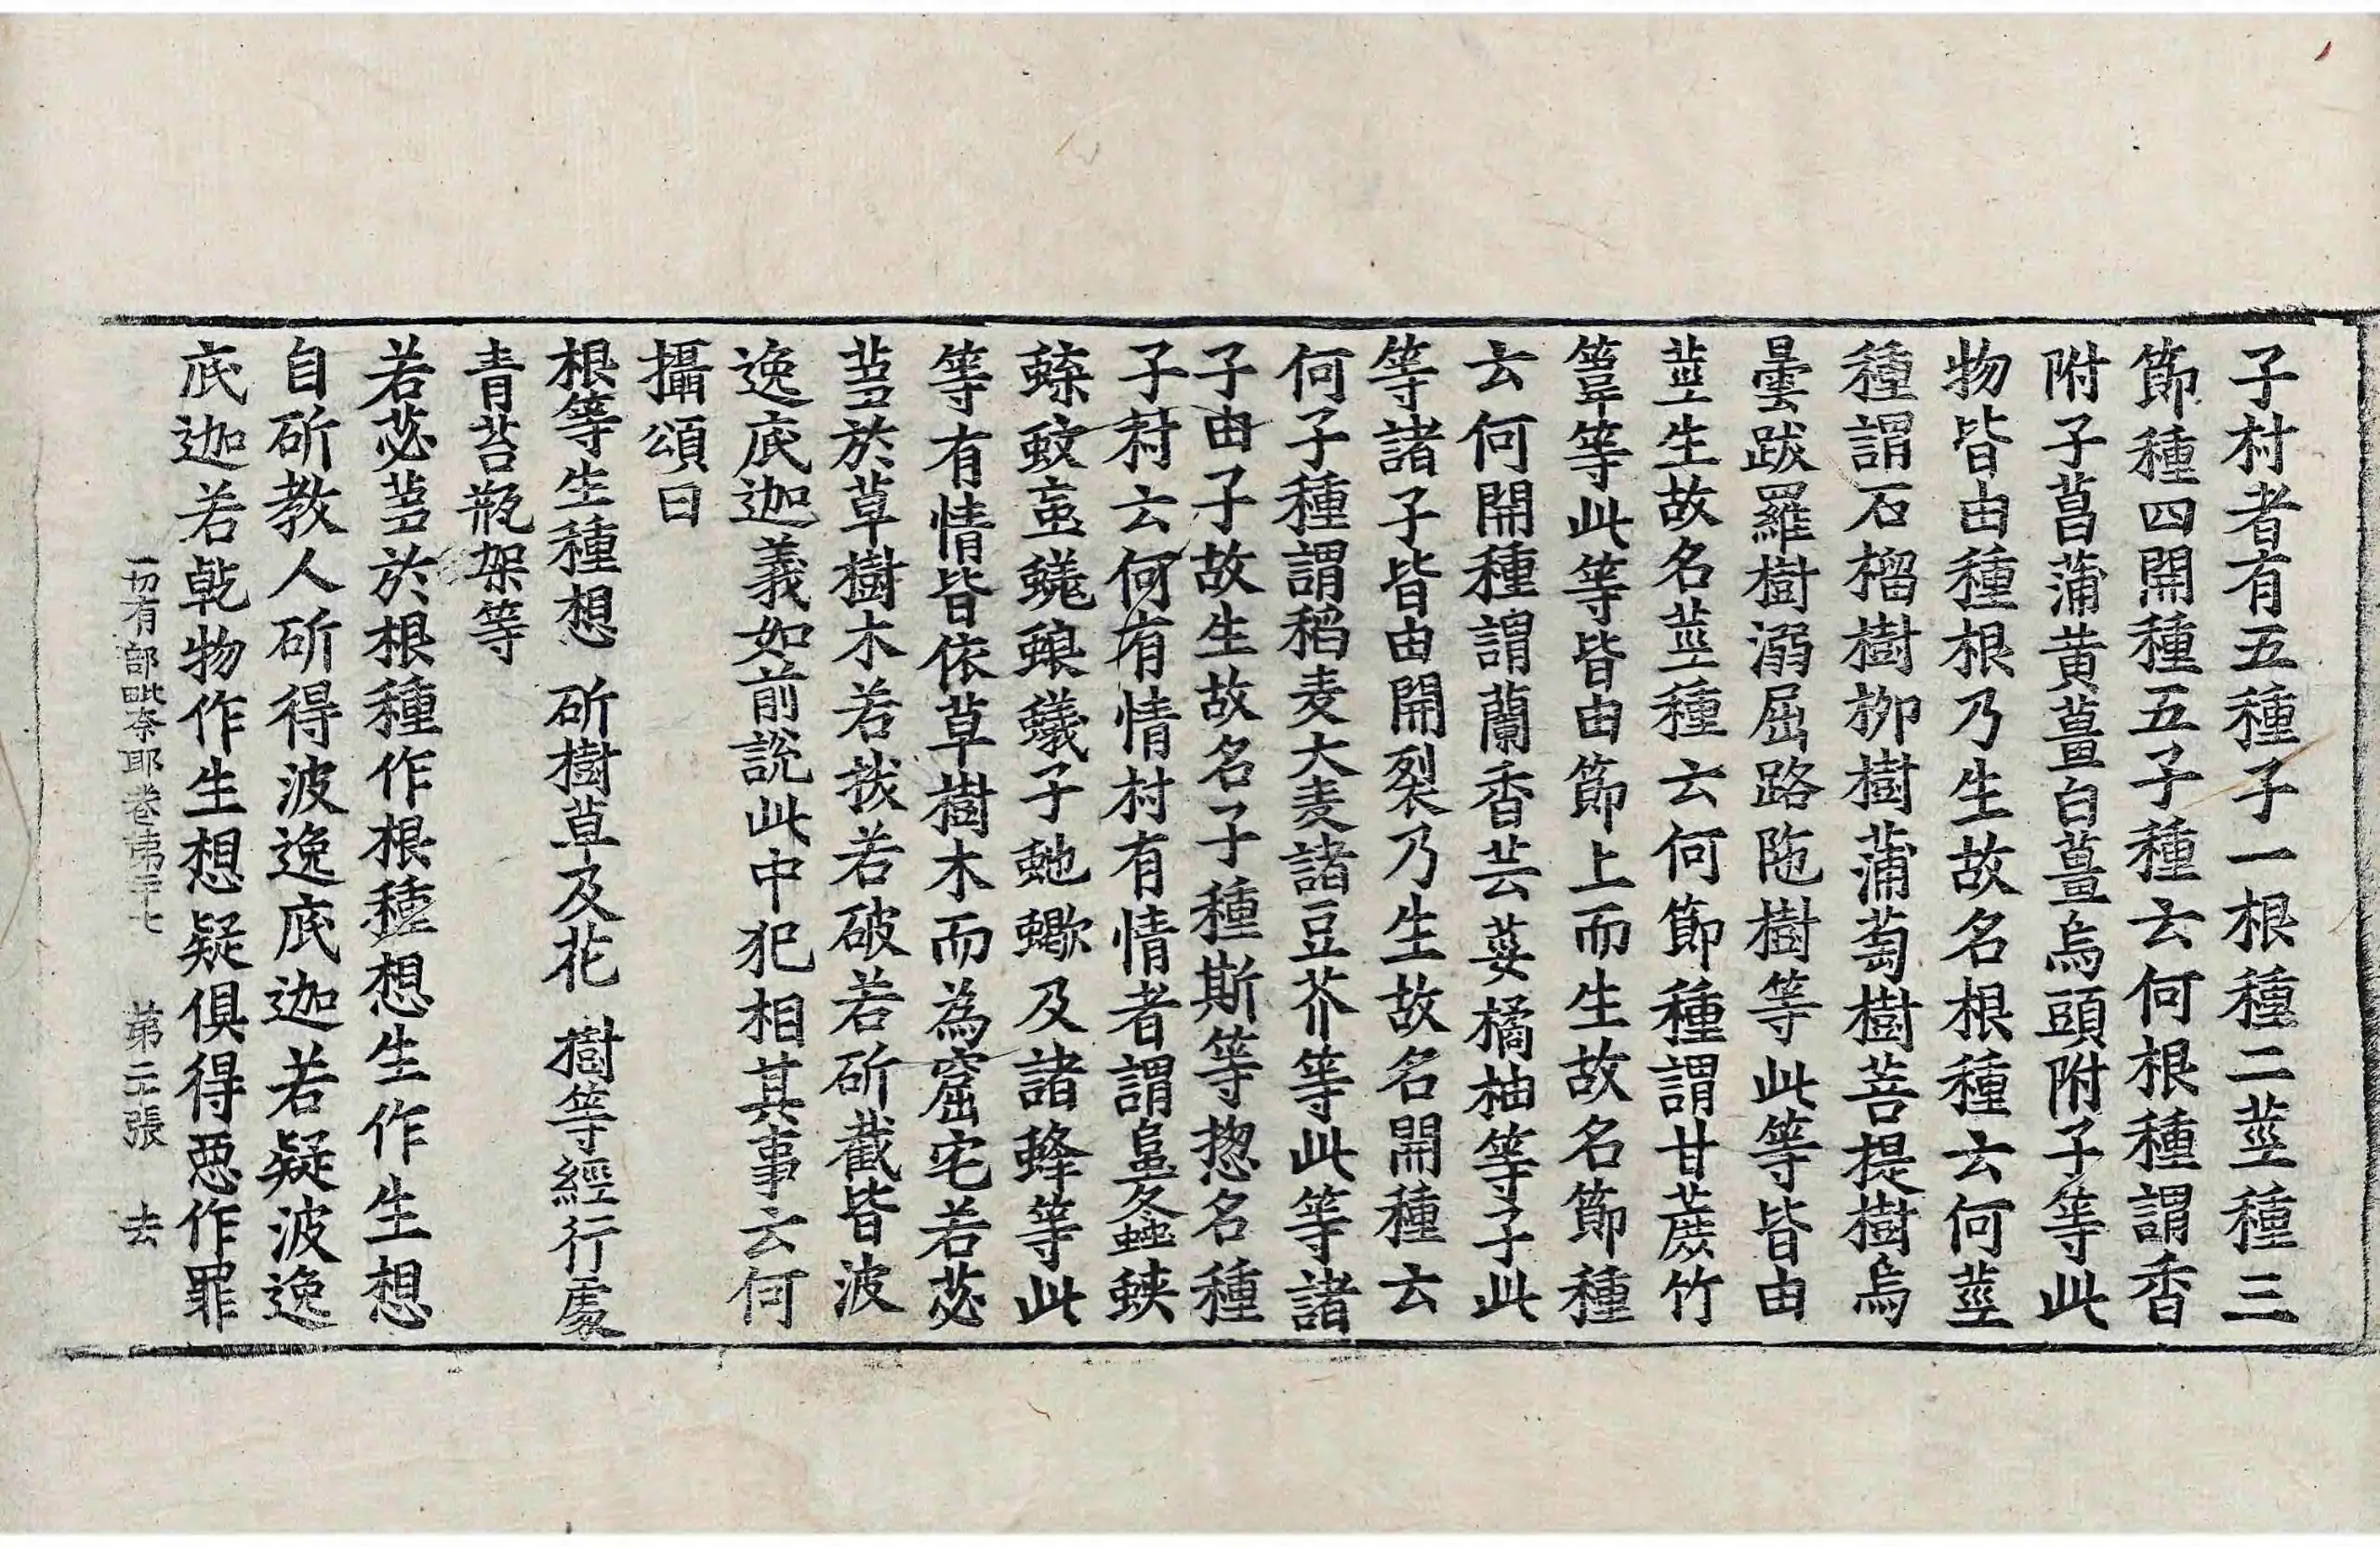 子村者有五種子一根種二莖種三
節種四開種五子種云何根種謂香
附子菖蒲黃薑白薑烏頭附子等此
物皆由種根乃生故名根種云何莖
種謂石榴樹柳樹蒲萄樹菩提樹烏
曇跋羅樹溺屈路陁樹等此等皆由
莖生故名莖種云何節種謂甘蔗竹
葦等此等皆由節上而生故名節種
云何開種謂蘭香芸荽橘柚等子此
等諸子皆由開裂乃生故名開種云
何子種謂稻麦大麦諸豆芥等此等諸
子由子故生故名子種斯等揔名種
子村云何有情村有情者謂蝗螽蛺
蝶蚊蝱蜣蜋蟻子虵蠍及諸蜂等此
等有情皆依草樹木而為窟宅若苾
芻於草樹木若拔若破若斫截皆波
逸底迦義如前說此中犯相其事云何
攝頌曰
根等生種想 斫樹草及花 樹等經行處
青苔瓶架等
若苾芻於根種作根種想生作生想
自斫教人斫得波逸底迦若疑波逸
底迦若乹物作生想疑俱得惡作罪
一切有部毗奈耶卷第二十七 第二張 去